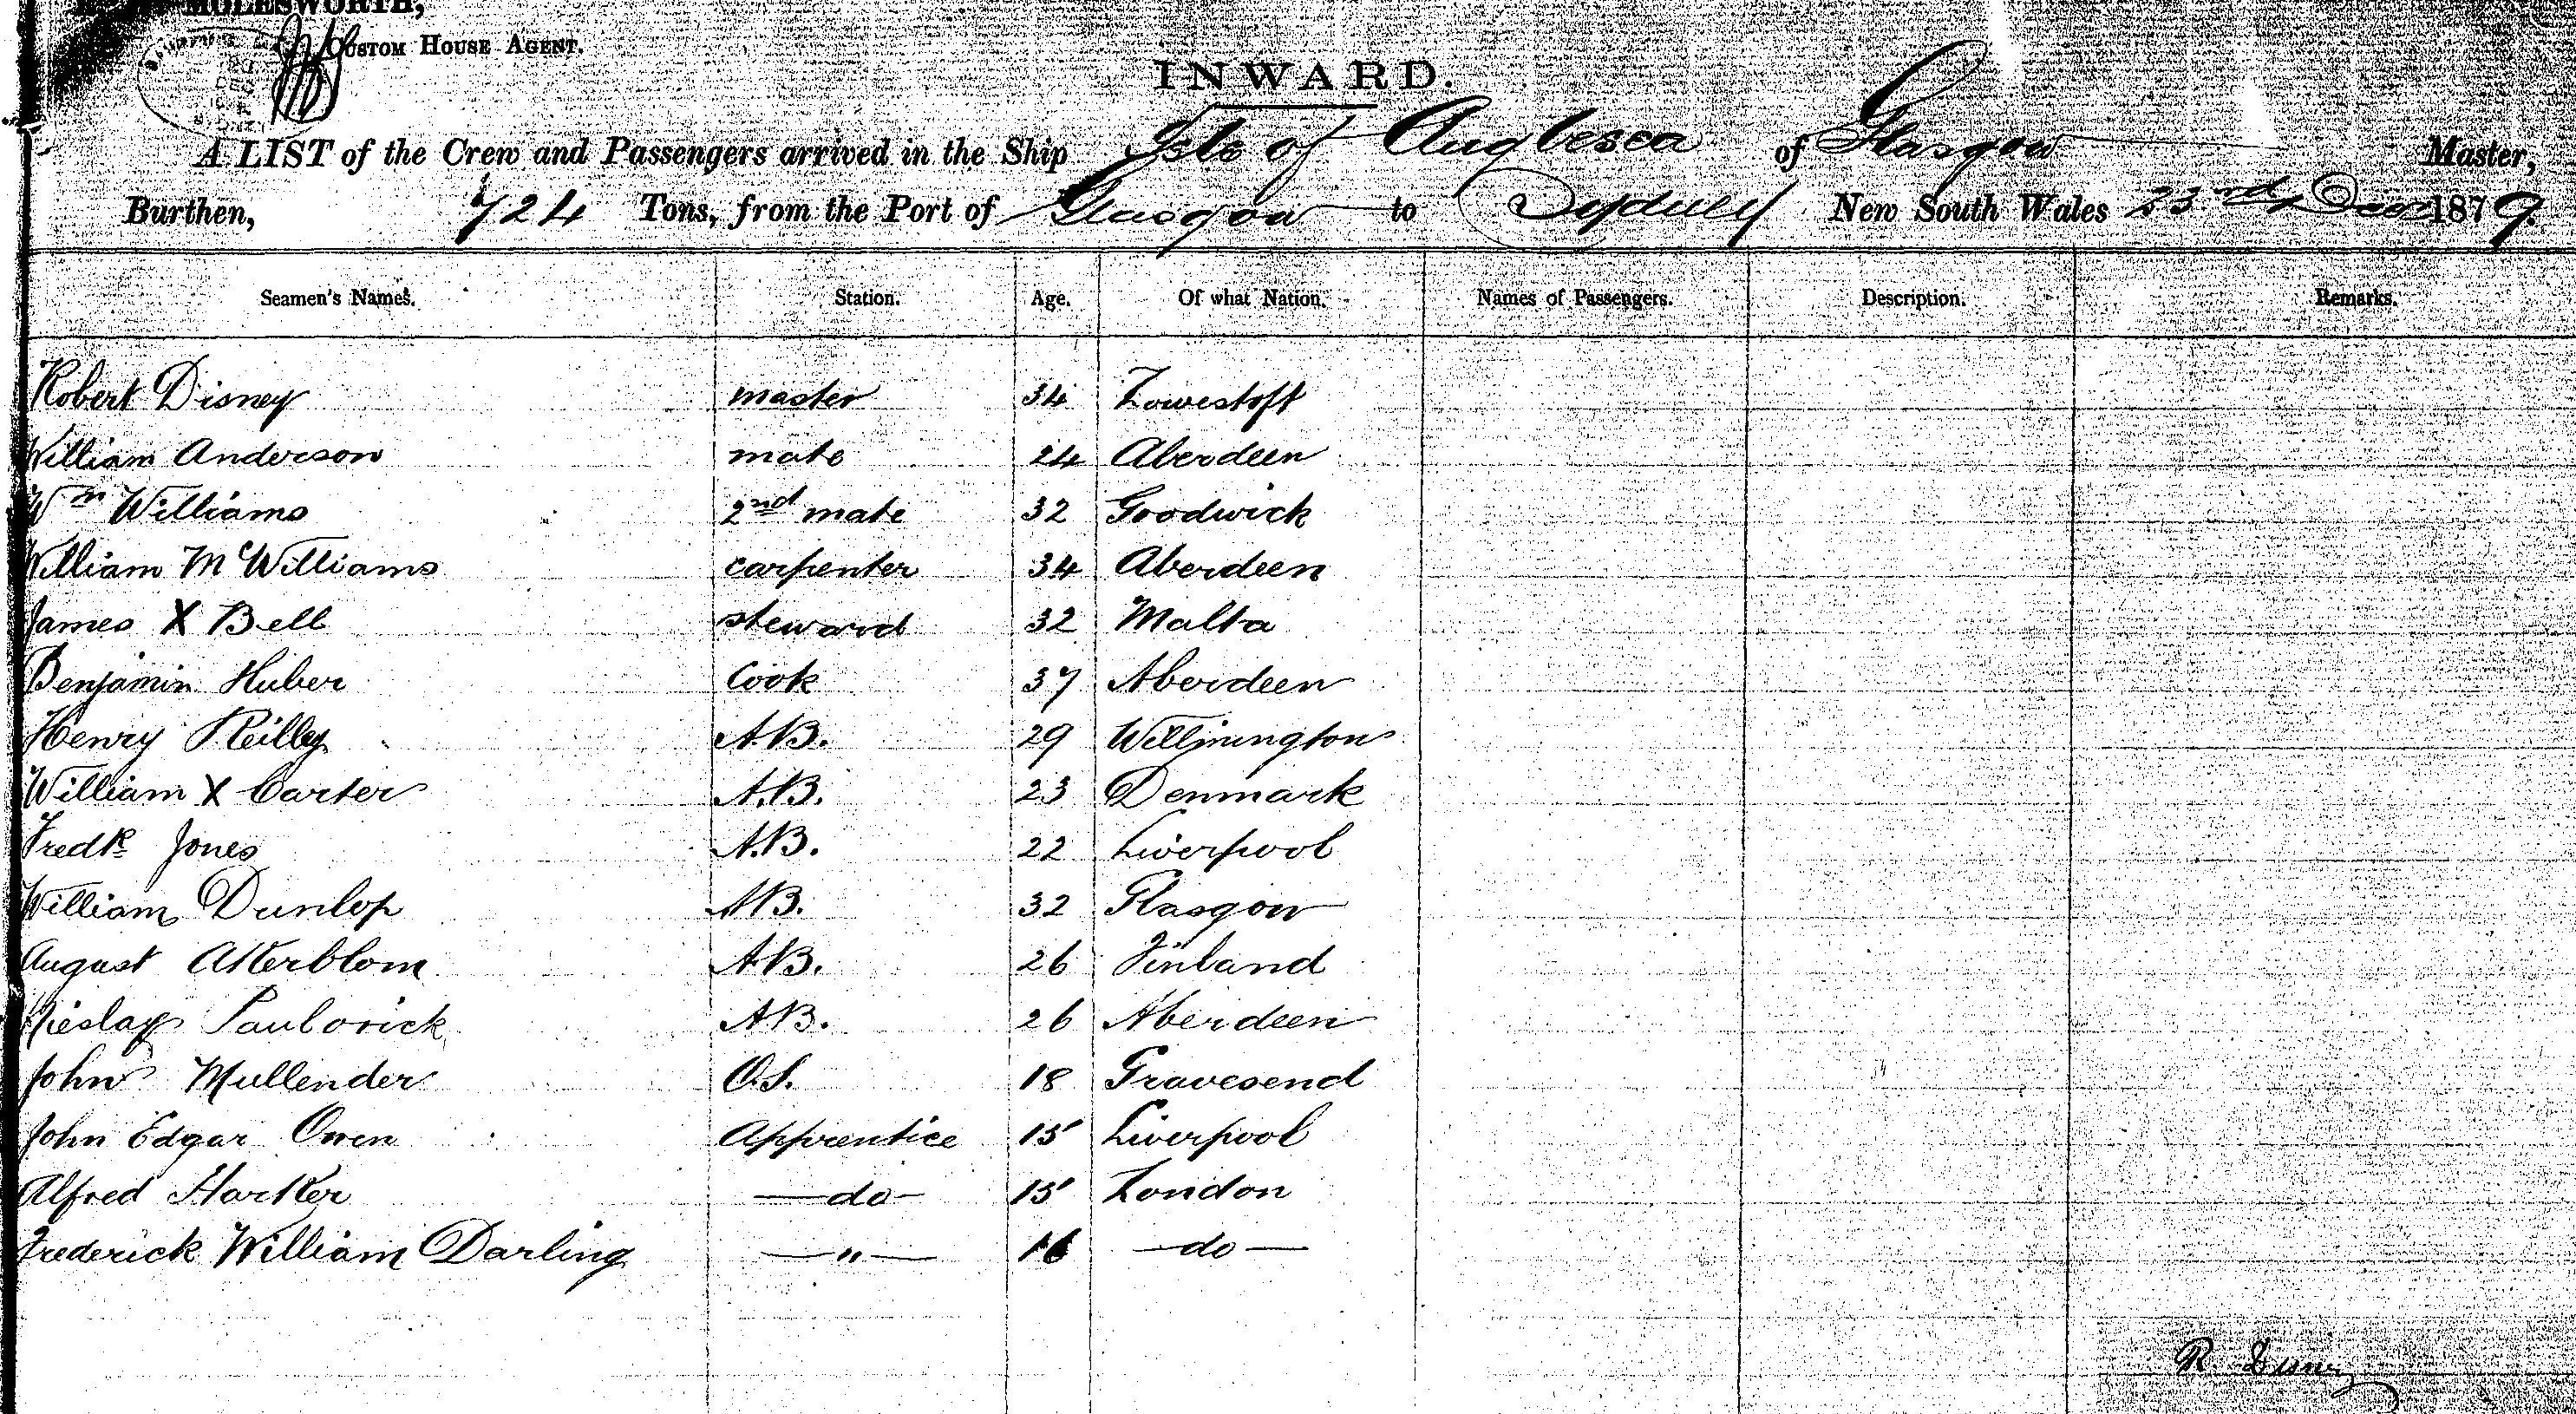 MOLESWORTH,
CUSTOM HOUSE AGENT.
INWARD.
A LIST of the Crew and Passengers arrived in the Ship Isle of Anglesea of Glasgow Master,
Burthen, 724 Tons, from the Port of Glasgow to Sydney New South Wales 23rd Decr 1879.
Seamen's Names. Station. Age. Of what Nation. Names of Passengers. Description. Remarks.
Robert Disney master 34 Lowestoft
William Anderson mate 24 Aberdeen
Wm Williams 2nd mate 32 Goodwick
William McWilliams carpenter 34 Aberdeen
James X Bell steward 32 Malta
Benjamin Huber Cook 37 Aberdeen
Henry Reilly A.B. 29 Willmington
William X Carter A.B. 23 Denmark
Fredk Jones A.B. 22 Liverpool
William Dunlop AB. 32 Glasgow
August Atterblom A.B. 26 Finland
Paulovick AB. 26 Aberdeen
John Mullender O.S. 18 Gravesend
John Edgar Owen Apprentice 15 Liverpool
Alfred Harker —do— 15 London
Frederick William Darling —"— 16 —do—
R. Disney